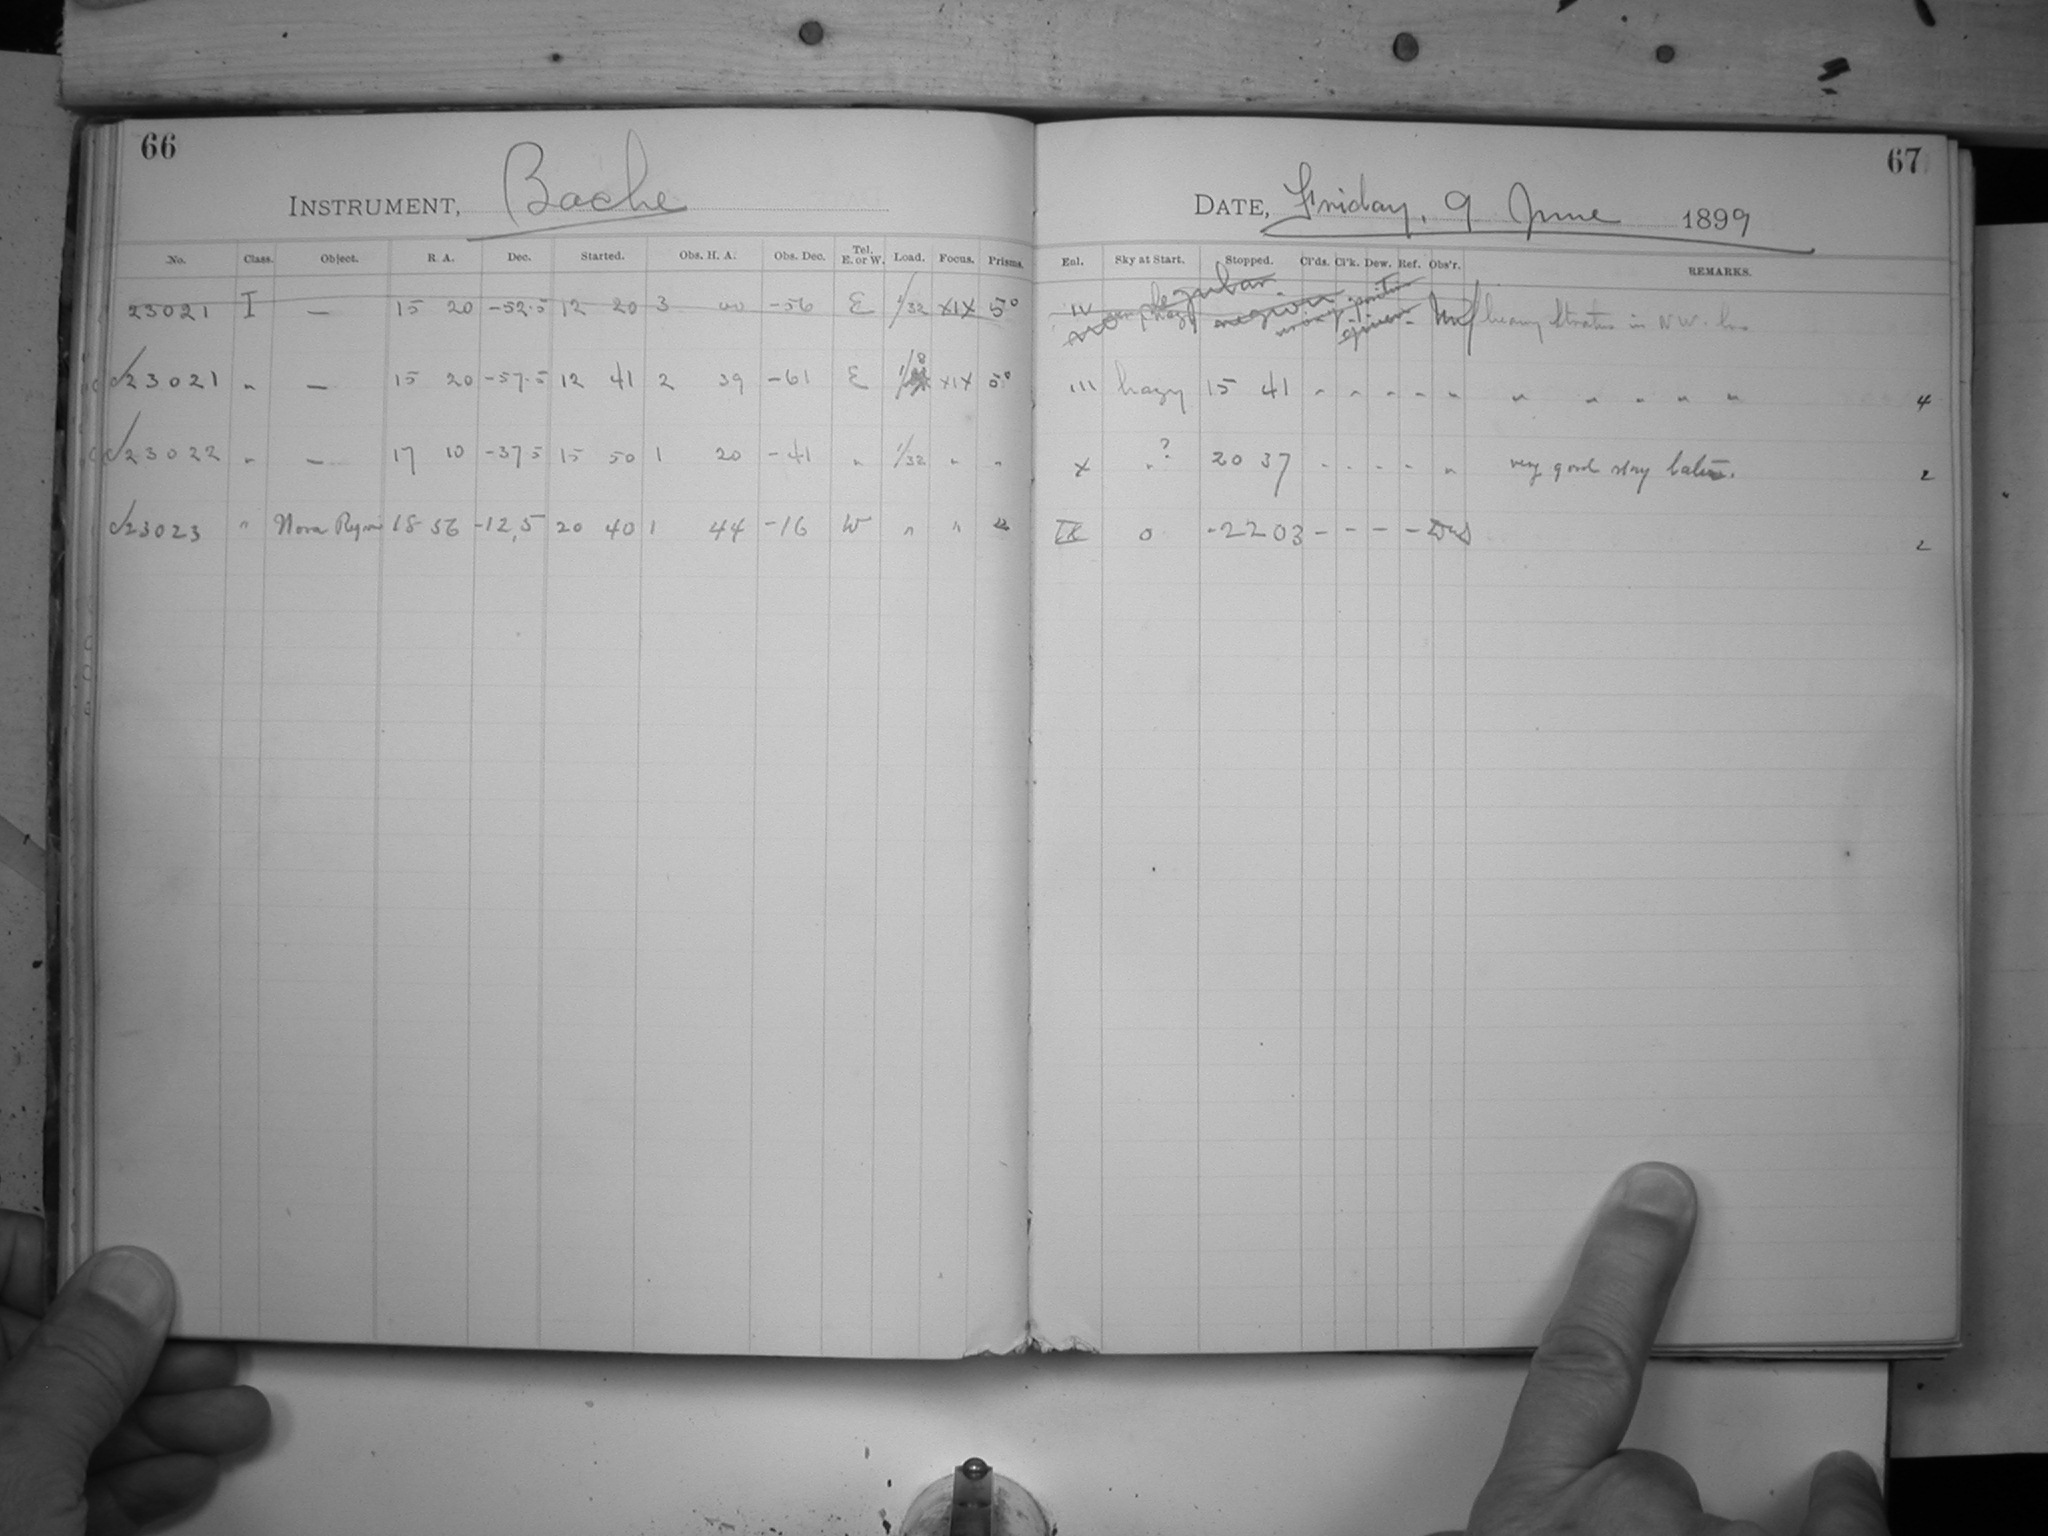 66
INSTRUMENT, Bache
No. Class. Object. R. A. Dec. Started. Obs. H. A. Obs. Dec. Tel. E. or W. Load. Focus. Prisms.
23021 I — 15 20 -52.5 12 20 3 00 -56 E 1/32 XIX 5°
23021 " — 15 20 -57.5 12 41 2 39 -61 E XIX 5°
23022 " — 17 10 -37 5 15 50 1 20 -41 " 1/32 " "
23023 " Nova Region 18 56 -12,5 20 40 1 44 -16 W " " "
67
DATE, Friday, 9 June 1899
Eal. Sky at Start. Stopped. Cl'ds. Cl'k. Dew. Ref. Obs'r. REMARKS.
IV hazy Regular region wrong position given heavy Stratus in NW.
III hazy 15 41 " " " " " " " " " " 4
X " ? 20 37 - - - - " very good sky later. 2
IX 0 -22 03 - - - - 2